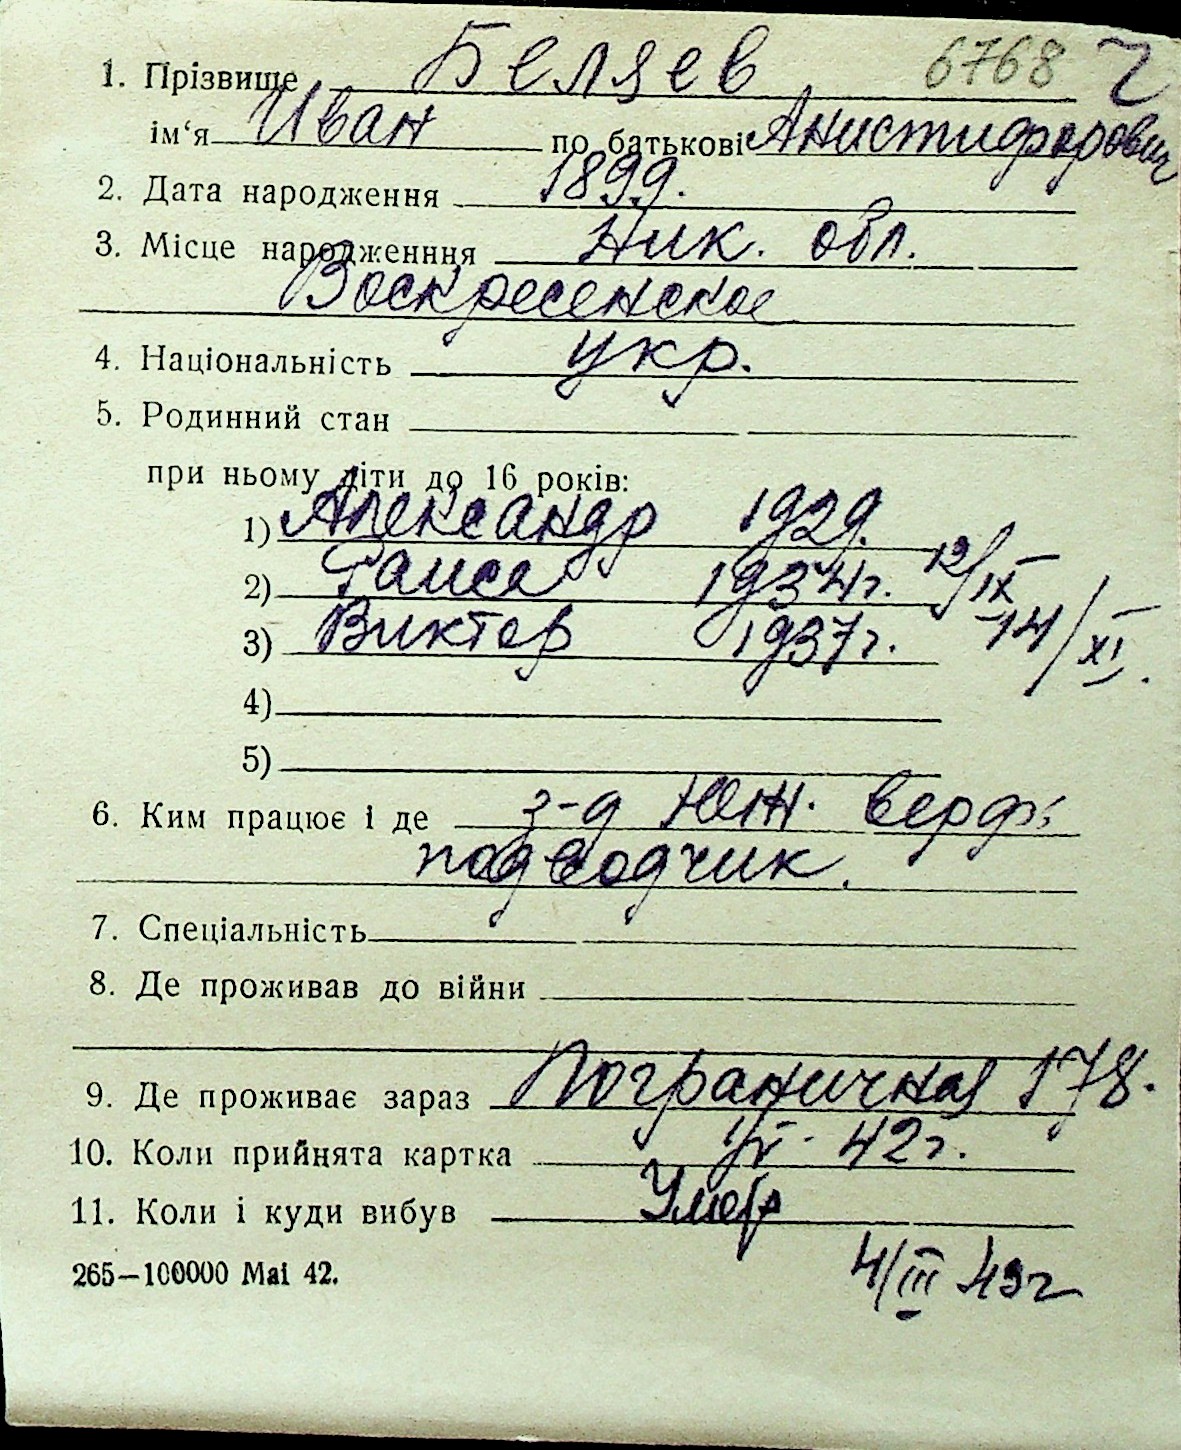 1. Прізвище Беляев 6768 г
ім‘я Иван по батькові Анистифорович
2. Дата народження 1899.
3. Місце народженння Ник. обл.
Воскресенское
4. Національність укр.
5. Родинний стан
при ньому діти до 16 років:
1) Александр 1929.
2) Таиса 1934г. 12/IX
3) Виктор 1937г. 14/XI.
4)
5)
6. Ким працює і де з-д Юж. верфь
подводчик.
7. Спеціальність
8. Де проживав до війни
9. Де проживає зараз Пограничная 178.
10. Коли прийнята картка 42г.
11. Коли і куди вибув Умер
265—100000 Mai 42.
4/III 43г